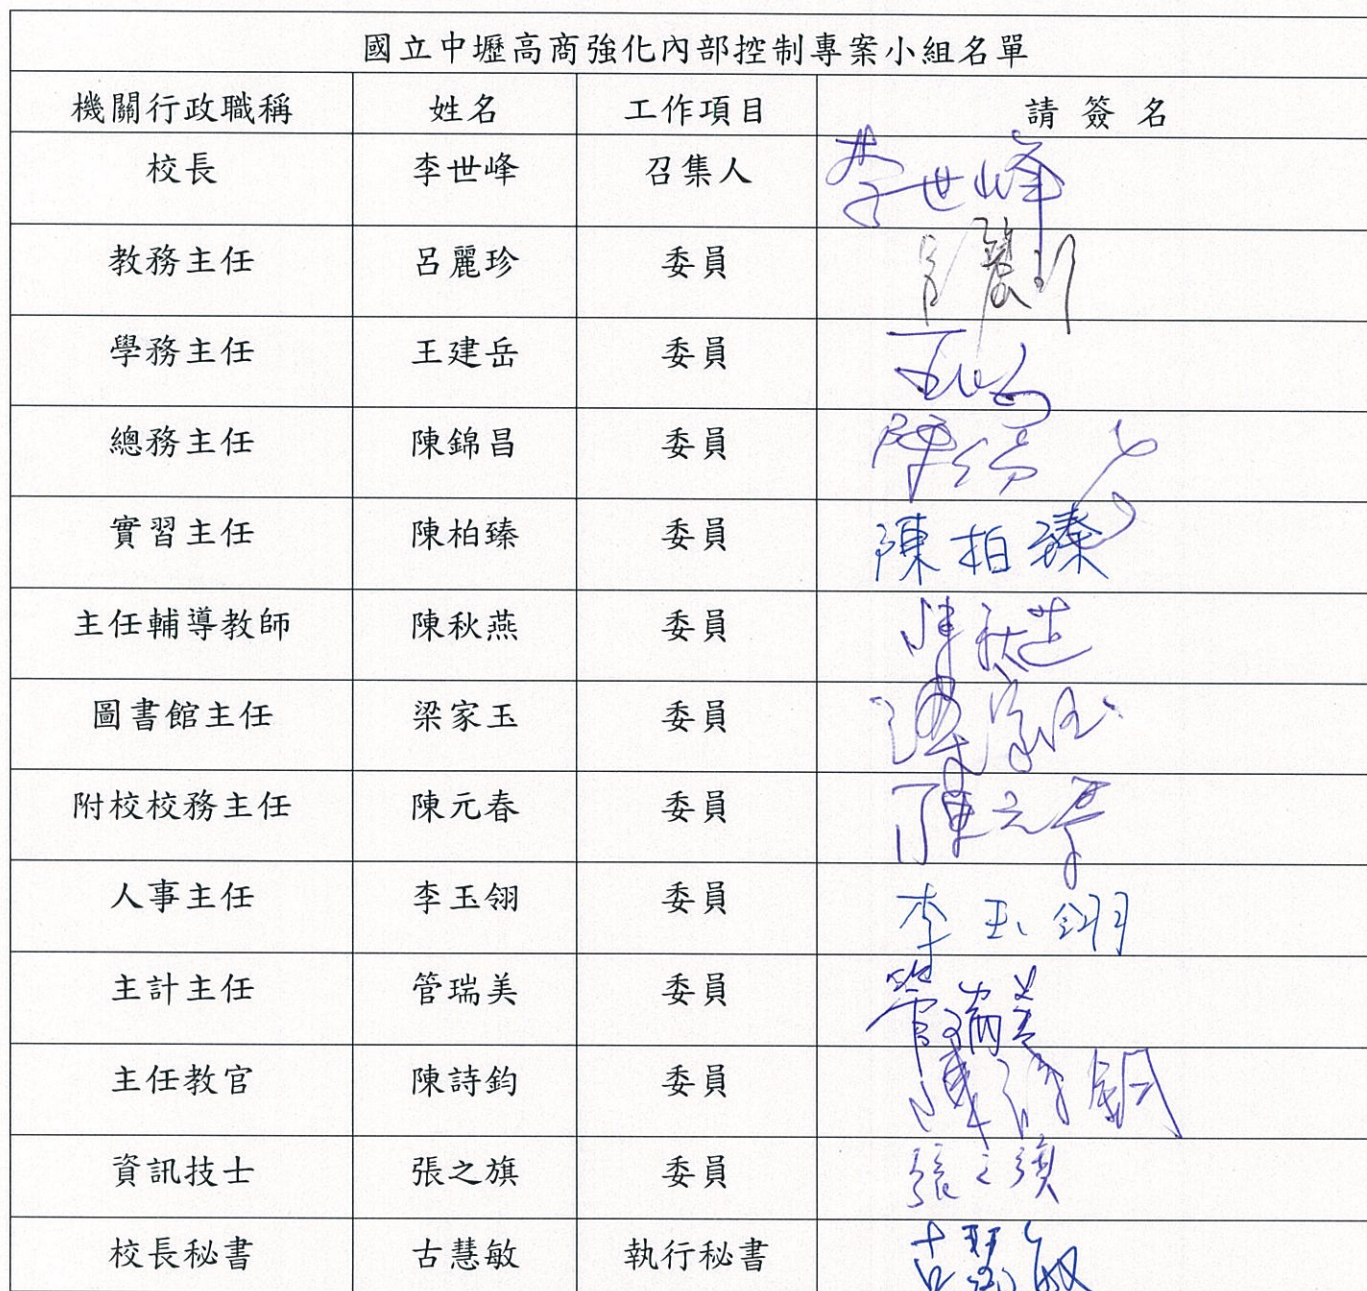 國立中壢高商強化內部控制專案小組名單
機關行政職稱 姓名 工作項目 請簽名
校長 李世峰 召集人 李世峰
教務主任 呂麗珍 委員 呂麗珍
學務主任 王建岳 委員
總務主任 陳錦昌 委員 陳錦昌
實習主任 陳柏臻 委員 陳柏臻
主任輔導教師 陳秋燕 委員 陳秋燕
圖書館主任 梁家玉 委員 梁家玉
附校校務主任 陳元春 委員 陳元春
人事主任 李玉翎 委員 李玉翎
主計主任 管瑞美 委員 管瑞美
主任教官 陳詩鈞 委員 陳詩鈞
資訊技士 張之旗 委員 張之旗
校長秘書 古慧敏 執行秘書 古慧敏